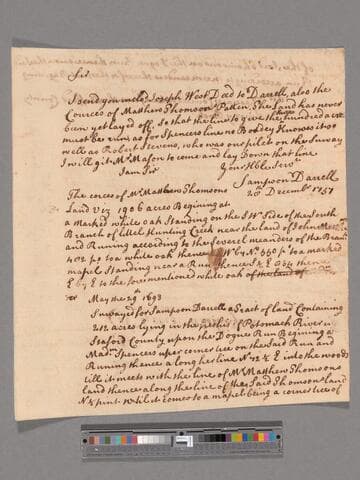 Sir
I send you incl'd Joseph West Deed to Darrell, also the
Cources of Matthew Thomsons Patten, The Land has never
been yet layed off, So that the line to give the hundred acre
must be run as for Spencers line no Bodey Knows it so
well as Robert Stevens, who was our pilot on the Survay
I will git Mr Mason to come and lay Down that line
I am Sir Your Hble Serv.
Sampson Darrell
20 Decembr 1757
The corces of Mr Matthew Thomsons
Land Viz 1906 acres Begining at
a Marked white oak Standing on the SW Side of the South
Branch of Littel Hunting Creek near the land of John
and Running according to the Severel meanders of the Branch
402 ps to a white oak thence W by N 550 ps to a marked
mapel Standing near a Run thence
E by E to the forementioned white oak of the land of
May the 29th 1693
Survayed for Sampson Darrell a Tract of land Containing
212 acres lying in the parish of Potomach River in
Staford County upon the Dogue Run Begining a
Madm Spencers uper corner tree on the Said Run and
Running thence along her line N 42 E into the woods
till it meets with the line of Mr Matthew Thomsons
land thence along the line of the Said Thomsons land
N until it comes to a mapel being a corner tree of